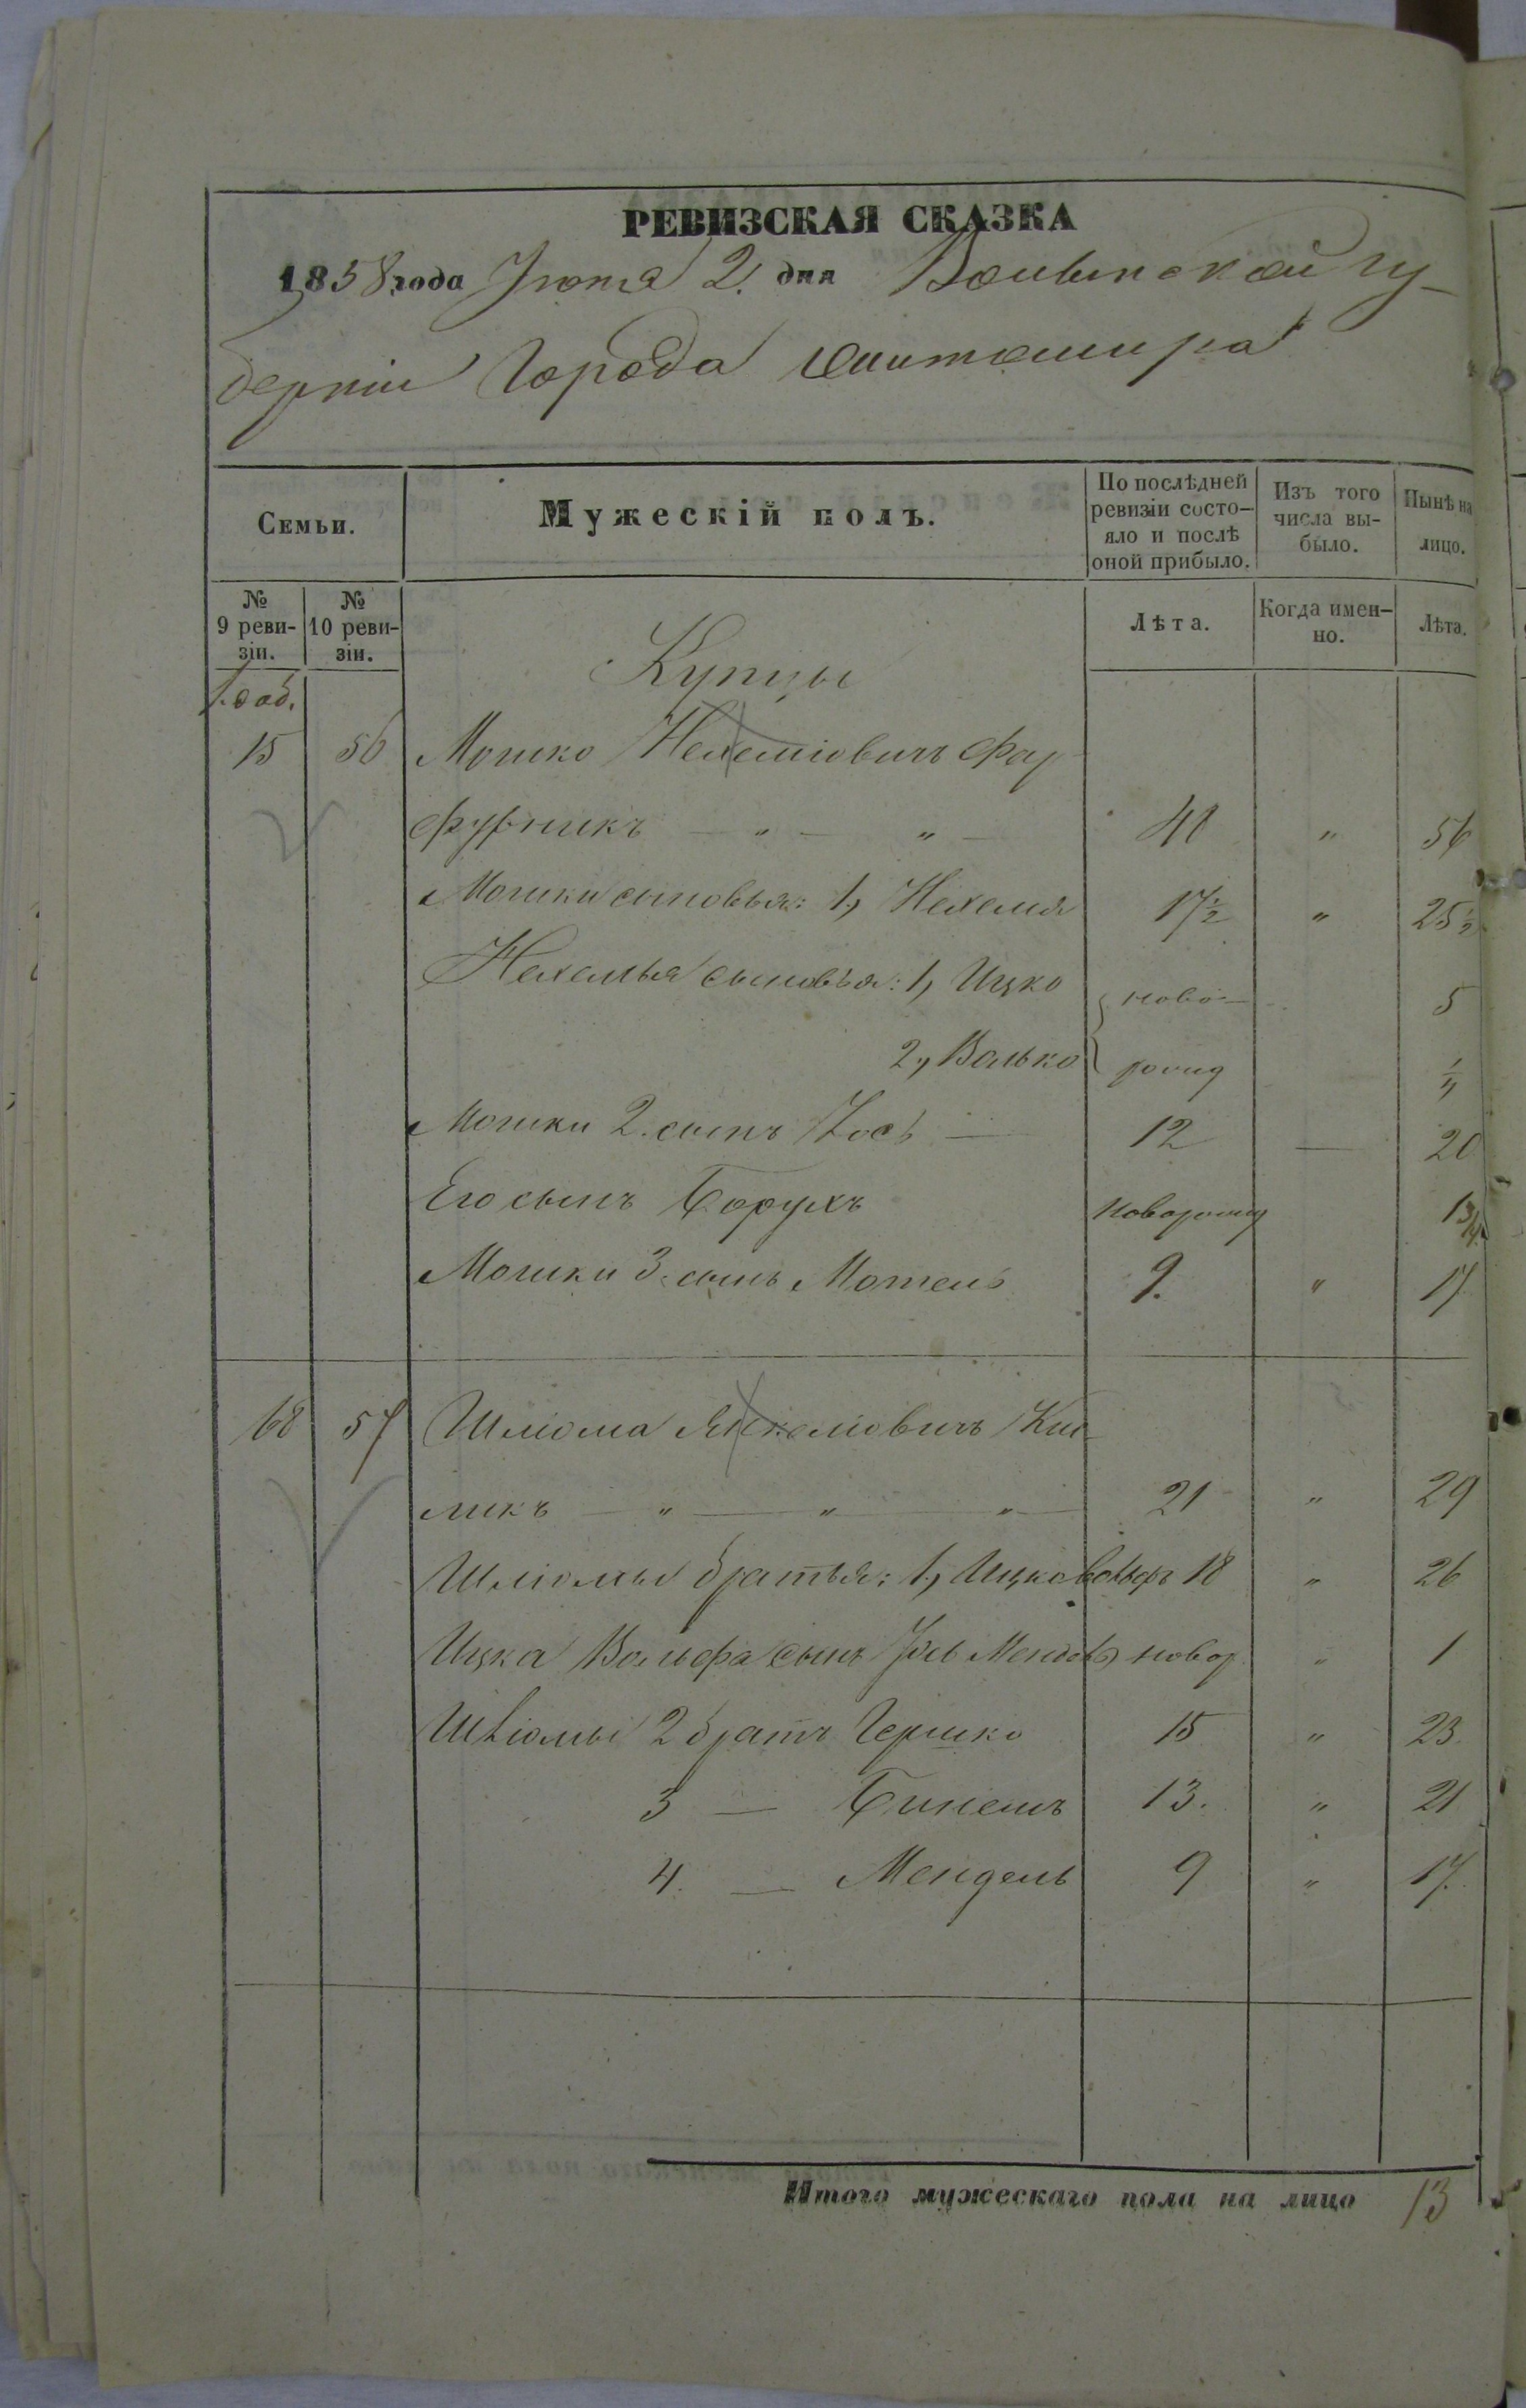 РЕВИЗСКАЯ СКАЗКА
1858 года Iюня 2. дня Волынской гу-
берніи Города Житомира
Семьи.
Мужескій полъ.
По послѣдней ревизіи состо-яло и послѣ оной прибыло.
Изъ того числа вы-было.
Нынѣ на лицо.
№ 9 реви-зіи.
№ 10 реви-зіи.
Лѣта.
Когда имен-но.
Лѣта.
Купцы
1. доб.
15 56 Мошко Нехеміовичъ Фар
фурникъ — " — " — " 56
Мошки сыновья: 1, Нехемія 17½ " 25½
Нехемья сыновья: 1, Ицко ново- 5
2, Валько рожд
Мошки 2. сынъ Іось — 12 — 20
Его сынъ Борухъ новорожд 1¾
Мошки 3. сынъ Мотель 9. " 17
68 57 Шліома Янкеліовичъ
ликъ — " — " — " — 21 " 29
Шліомы братья: 1, Ицко Вольфъ 18 " 26
Ицка Вольфа сынъ новор. " 1
Шліомы 2 братъ Гершко 15 " 23.
3 — 13. " 21
4. — Мендель 9 " 17.
Итого мужескаго пола на лицо 13